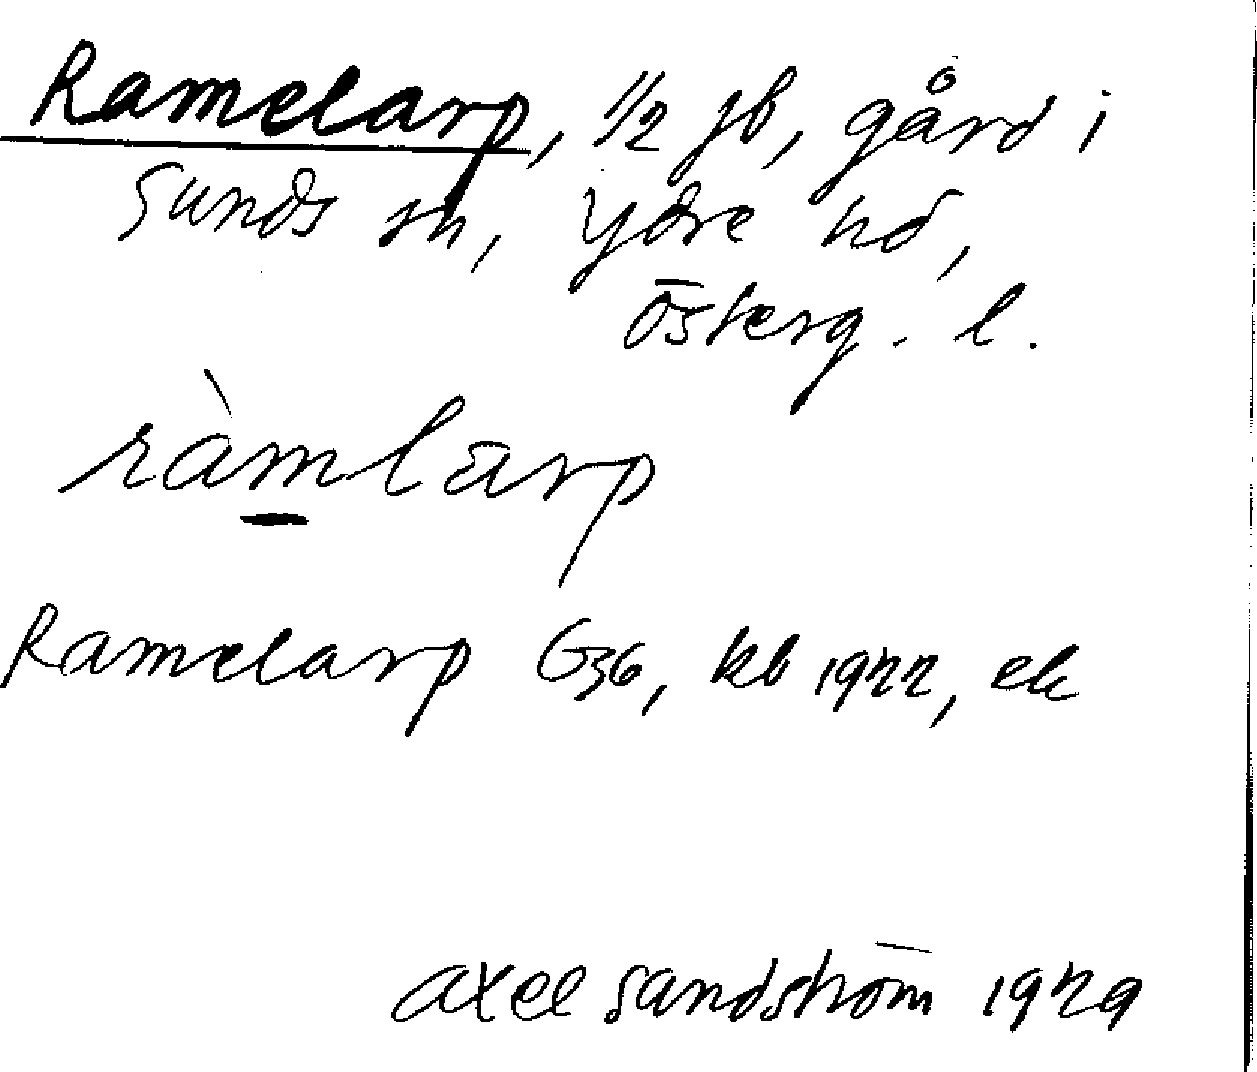 Ramelarp, 1/2 jb, gård i
Sunds sn, Ydre hd,
Österg. l.
ràmlarp
Ramelarp G36, kb 1922, ek
Axel Sandström 1929